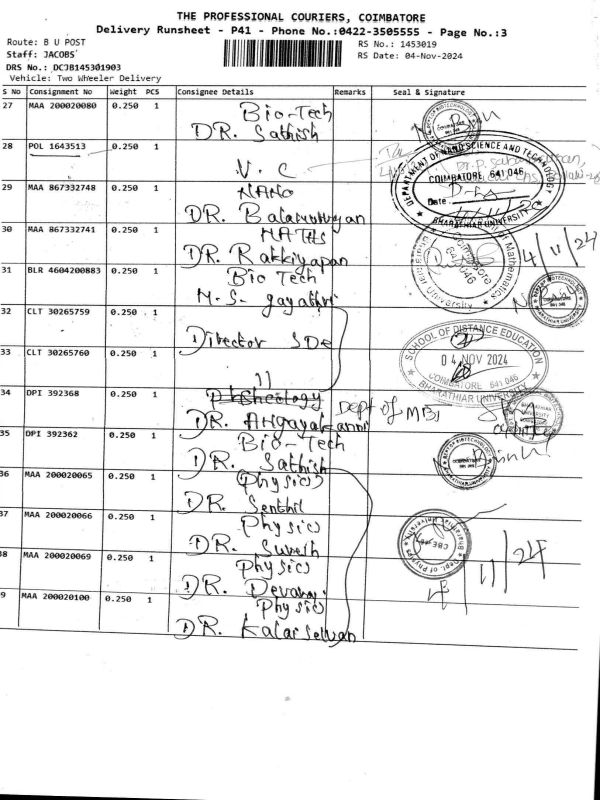 THE PROFESSIONAL COURIERS, COIMBATORE
Delivery Runsheet - P41 - Phone No.:0422-3505555 - Page No.:3
Route: B U POST
Staff: JACOBS
DRS No.: DCJB145301903
Vehicle: Two Wheeler Delivery
RS No.: 1453019
RS Date: 04-Nov-2024
S No Consignment No Weight PCS Consignee Details Remarks Seal & Signature
27 MAA 200020080 0.250 1 Bio-Tech
DR. Sathish
28 POL 1643513 0.250 1 V. C
29 MAA 867332748 0.250 1 NANO
DR.
30 MAA 867332741 0.250 1 MATHS
DR. Rakkiyapan
31 BLR 4604200883 0.250 1 Bio Tech
M.S. gayathri
32 CLT 30265759 0.250 1
Director SDE
33 CLT 30265760 0.250 1
11
34 DPI 392368 0.250 1 Dept of MBI
DR. Angayakanni
35 DPI 392362 0.250 1 Bio-Tech
DR. Sathish
36 MAA 200020065 0.250 1 Physics
DR. Senthil
37 MAA 200020066 0.250 1 Physics
DR. Suresh
38 MAA 200020069 0.250 1 Physics
DR.
9 MAA 200020100 0.250 1 Physics
DR. Kalai Selvan
DEPARTMENT OF NANO SCIENCE AND TECHNOLOGY
COIMBATORE 641 046
Date
BHARATHIAR UNIVERSITY
4/11/24
Mathematics
Coimbatore
641 046
SCHOOL OF DISTANCE EDUCATION
04 NOV 2024
COIMBATORE 641 046
BHARATHIAR UNIVERSITY
Dept. of Physics
CBE-46
Bharathiar University
4/11/24